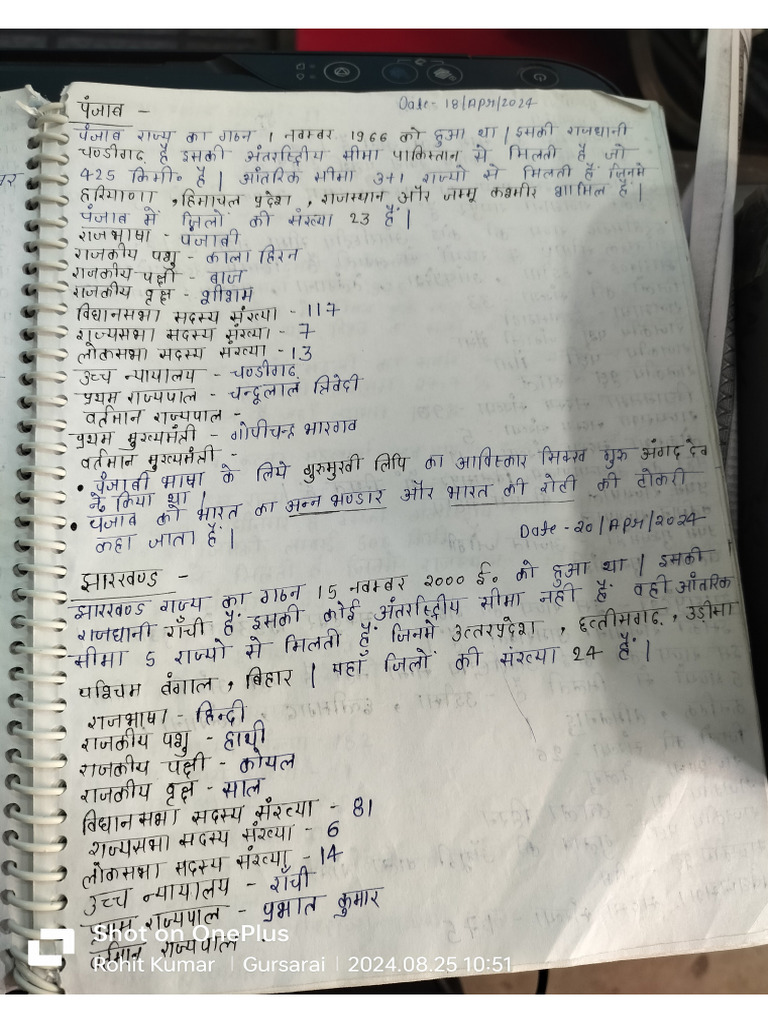 Date- 18/Apr/2024
पंजाब -
पंजाब राज्य का गठन 1 नवम्बर 1966 को हुआ था | इसकी राजधानी
चण्डीगढ़ है इसकी अंतर्राष्ट्रीय सीमा पाकिस्तान से मिलती है जो
425 किमी० है | आंतरिक सीमा 3+1 राज्यो से मिलती है जिनमे
हरियाणा , हिमाचल प्रदेश , राजस्थान और जम्मू कश्मीर शामिल है |
पंजाब में जिलों की संख्या 23 है |
राजभाषा - पंजाबी
राजकीय पशु - काला हिरन
राजकीय पक्षी - बाज
राजकीय वृक्ष - शीशम
विधानसभा सदस्य संख्या - 117
राज्यसभा सदस्य संख्या - 7
लोकसभा सदस्य संख्या - 13
उच्च न्यायालय - चण्डीगढ़
प्रथम राज्यपाल - चन्दूलाल त्रिवेदी
वर्तमान राज्यपाल -
प्रथम मुख्यमंत्री - गोपीचन्द्र भारगव
वर्तमान मुख्यमंत्री -
• पंजाबी भाषा के लिये गुरुमुखी लिपि का आविस्कार सिक्ख गुरु अंगद देव
ने किया था |
• पंजाब को भारत का अन्न भण्डार और भारत की रोटी की टोकरी
कहा जाता है |
Date -20/Apr/2024
झारखण्ड -
झारखण्ड राज्य का गठन 15 नवम्बर 2000 ई० को हुआ था | इसकी
राजधानी राँची है इसकी कोई अंतर्राष्ट्रीय सीमा नही है वही आंतरिक
सीमा 5 राज्यो से मिलती है जिनमे उत्तरप्रदेश , छत्तीसगढ़ , उड़ीसा
पश्चिम बंगाल , बिहार | यहाँ जिलों की संख्या 24 है |
राजभाषा - हिन्दी
राजकीय पशु - हाथी
राजकीय पक्षी - कोयल
राजकीय वृक्ष - साल
विधानसभा सदस्य संख्या - 81
राज्यसभा सदस्य संख्या - 6
लोकसभा सदस्य संख्या - 14
उच्च न्यायालय - राँची
प्रथम राज्यपाल - प्रभात कुमार
वर्तमान राज्यपाल
Shot on OnePlus
Rohit Kumar | Gursarai | 2024.08.25 10:51